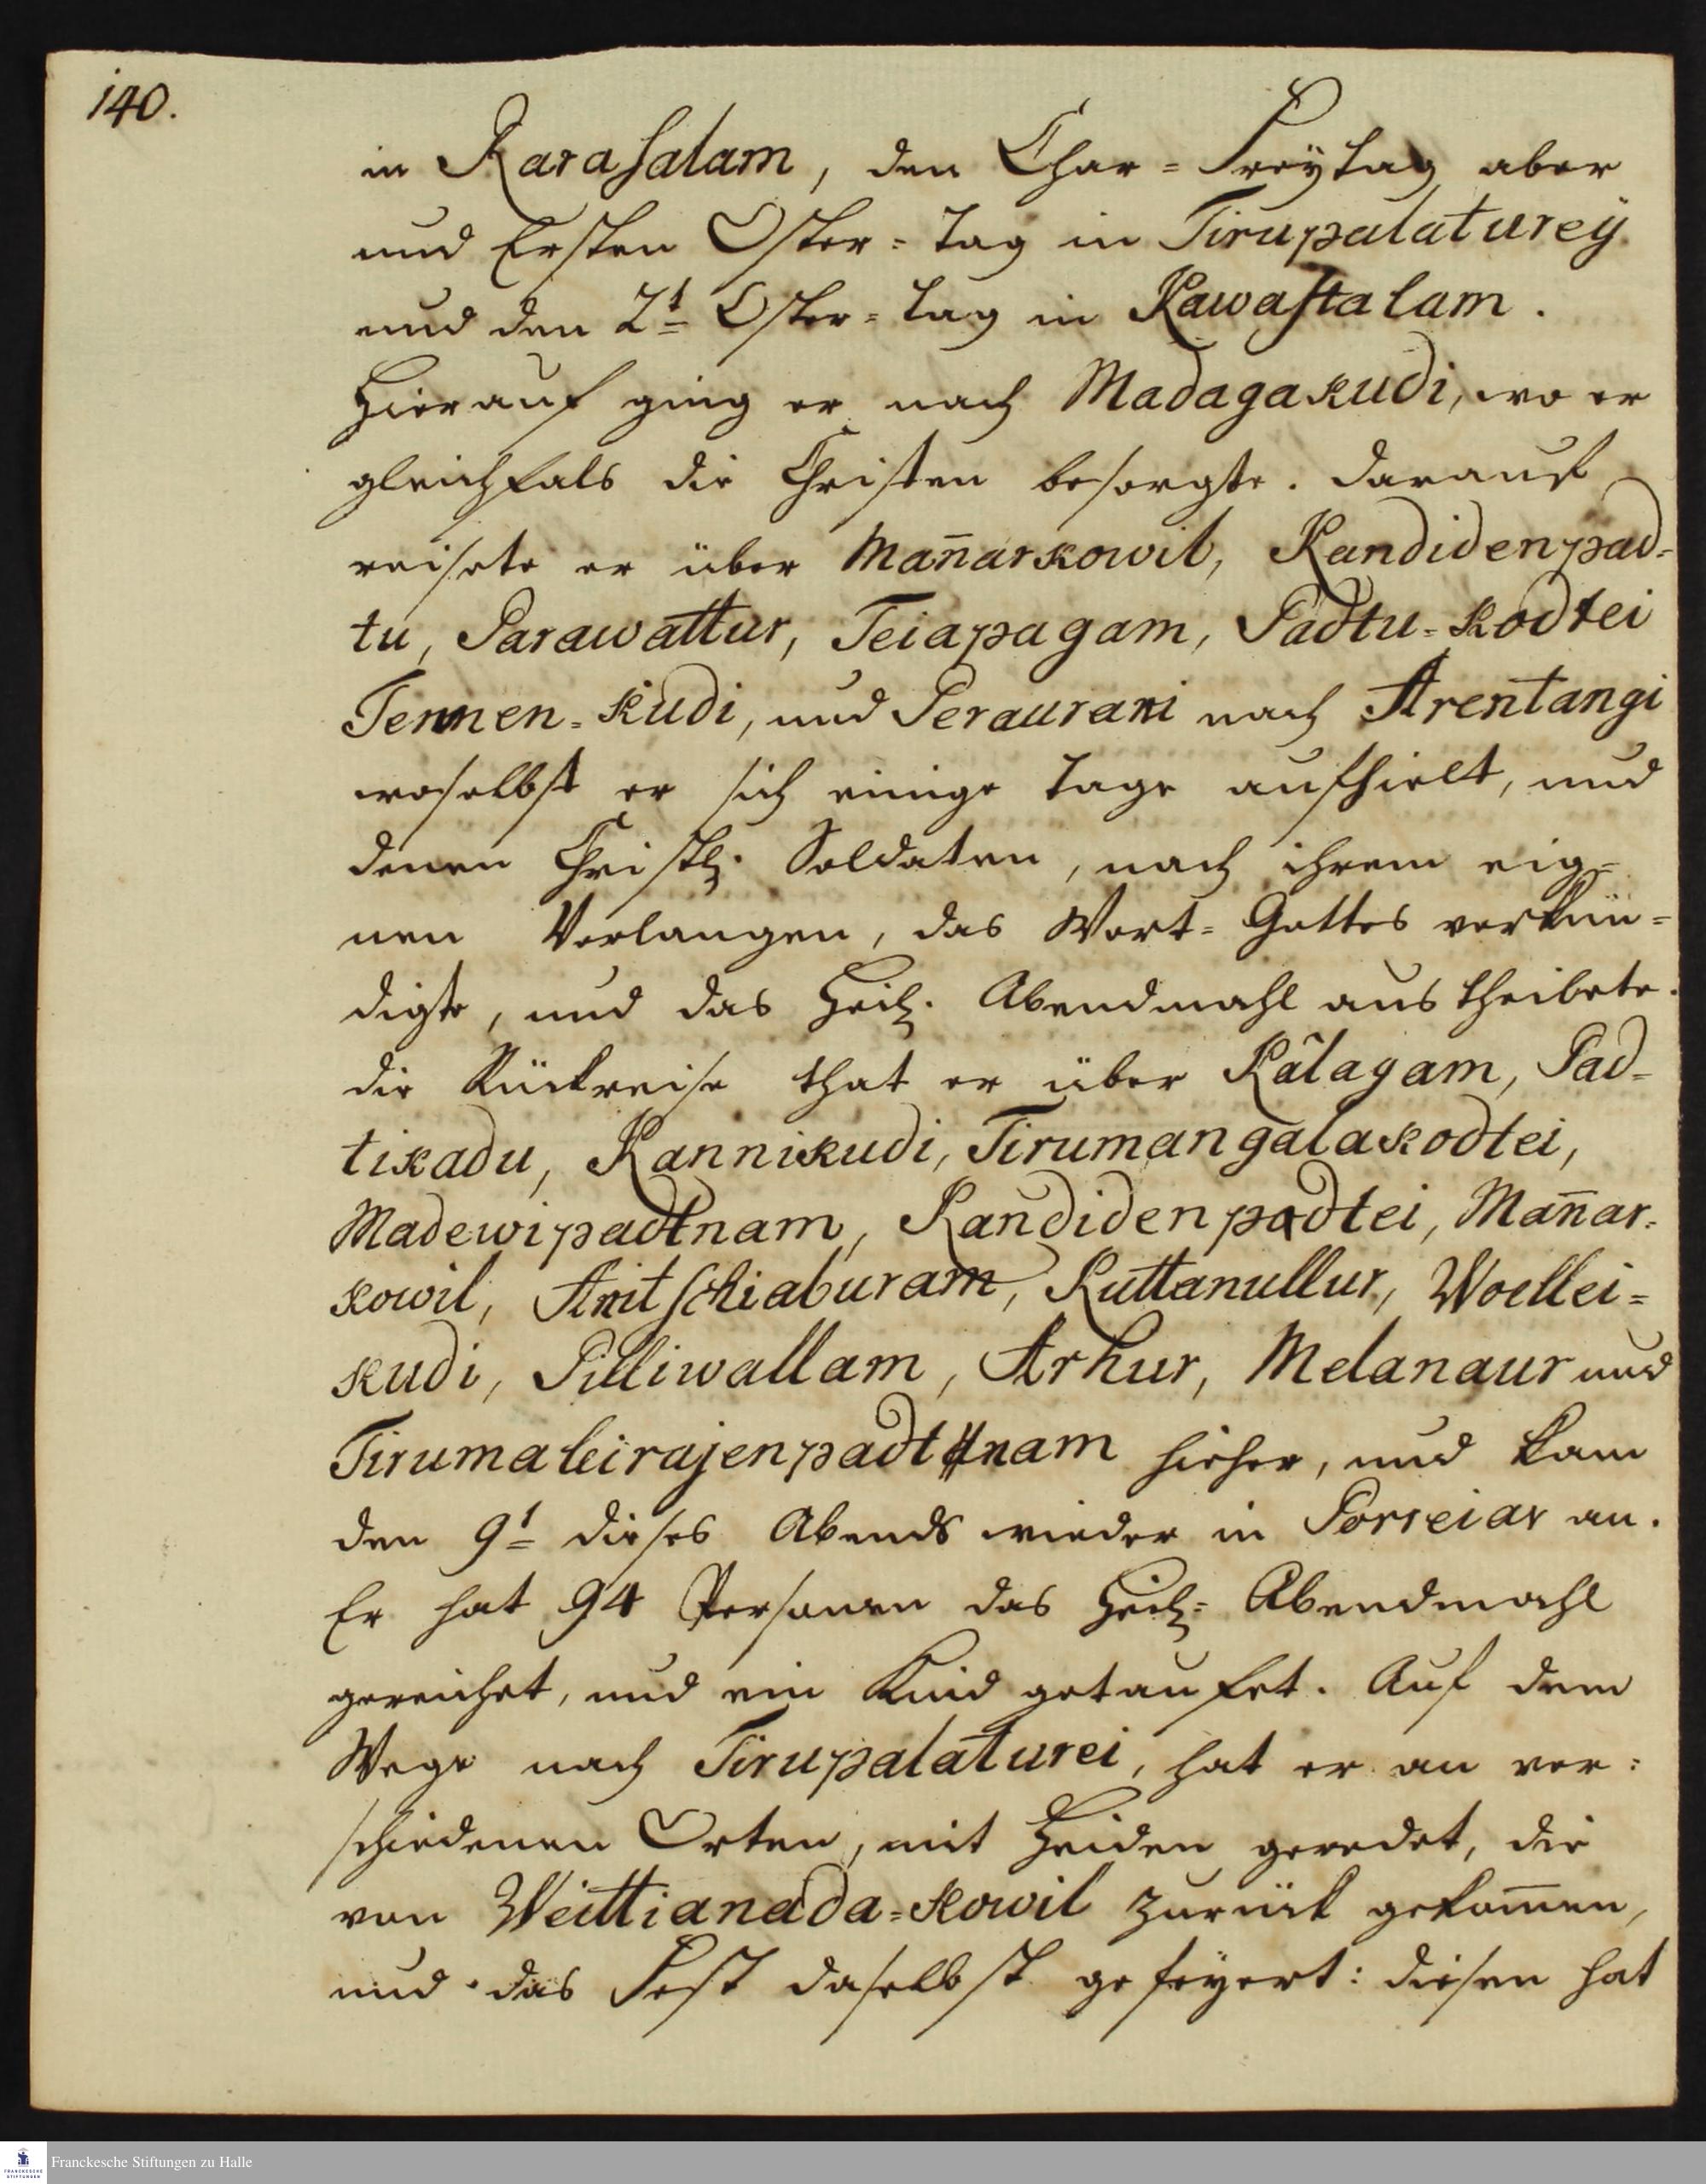 140.
in Karasalam, den Char=Freytag aber
und Ersten Oster=Tag in Tirupalaturey
und den 2t Oster=Tag in Kawastalam.
Hierauf ging er nach Madagakudi, wo er
gleichfals die Christen besorgte. Darauf
reisete er über Mañarkowil, Kandidenpad-
tu, Parawattur, Teiapagam, Padtu=kodtei
Tennen=kudi, und Peraurani nach Arentangi
woselbst er sich einige Tage aufhielt, und
denen Christl. Soldaten, nach ihrem eig=
nen Verlangen, das Wort=Gottes verkün=
digte, und das Heil. Abendmahl austheilete.
die Rückreise that er über Kâlagam, Pad=
tikadu, Kannikudi, Tirumangalakodtei,
Madewipadtnam, Kandidenpadtei, Mañar=
kowil, Anitschiaburam, Kuttanullur, Woellei=
kudi, Pilliwallam, Arhur, Melanaur und
Tirumaleirajenpadtnam hieher, und kam
den 9t dieses Abends wieder in Porreiar an.
Er hat 94 Personen das Heil= Abendmahl
gereichet, und ein Kind getaufet. Auf dem
Wege nach Tirupalaturei, hat er an ver=
schiedenen Orten, mit Heiden geredet, die
von Weittianada=kowil zurück gekom̄en,
und das Fest daselbst gefeyert: diesen hat
Franckesche Stiftungen zu Halle